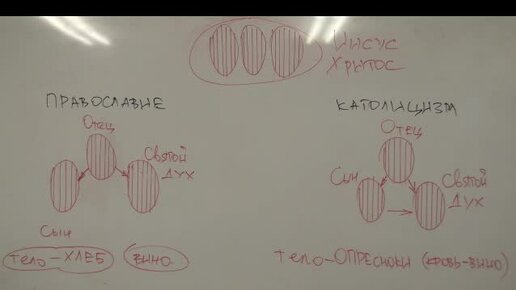 Иисус
Христос
ПРАВОСЛАВИЕ
Отец
Святой
Дух
Сын
Тело-ХЛЕБ
вино
КАТОЛИЦИЗМ
Отец
Сын
Святой
Дух
Тело-ОПРЕСНОКИ (кровь-вино)